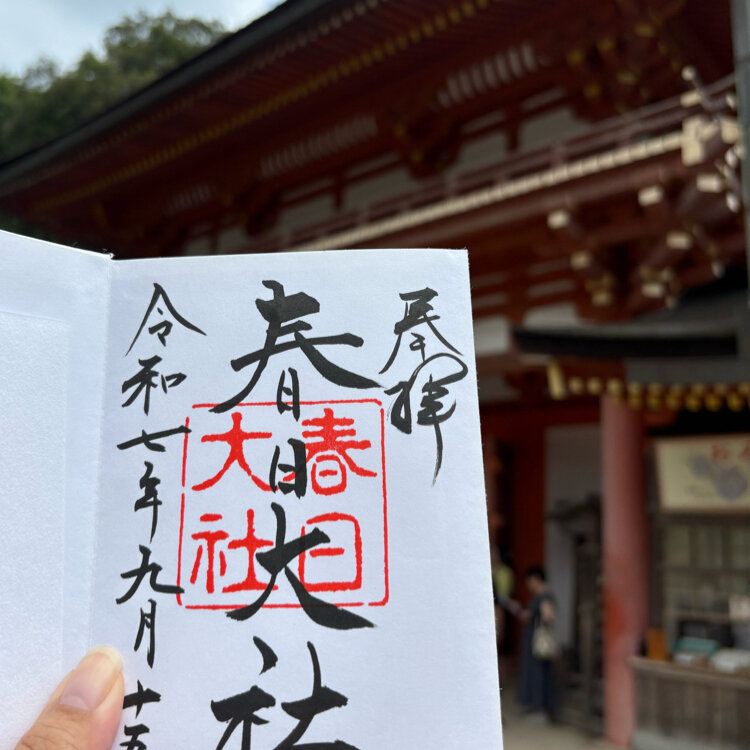 奉拝
春日大社
春日
大社
令和七年九月十五